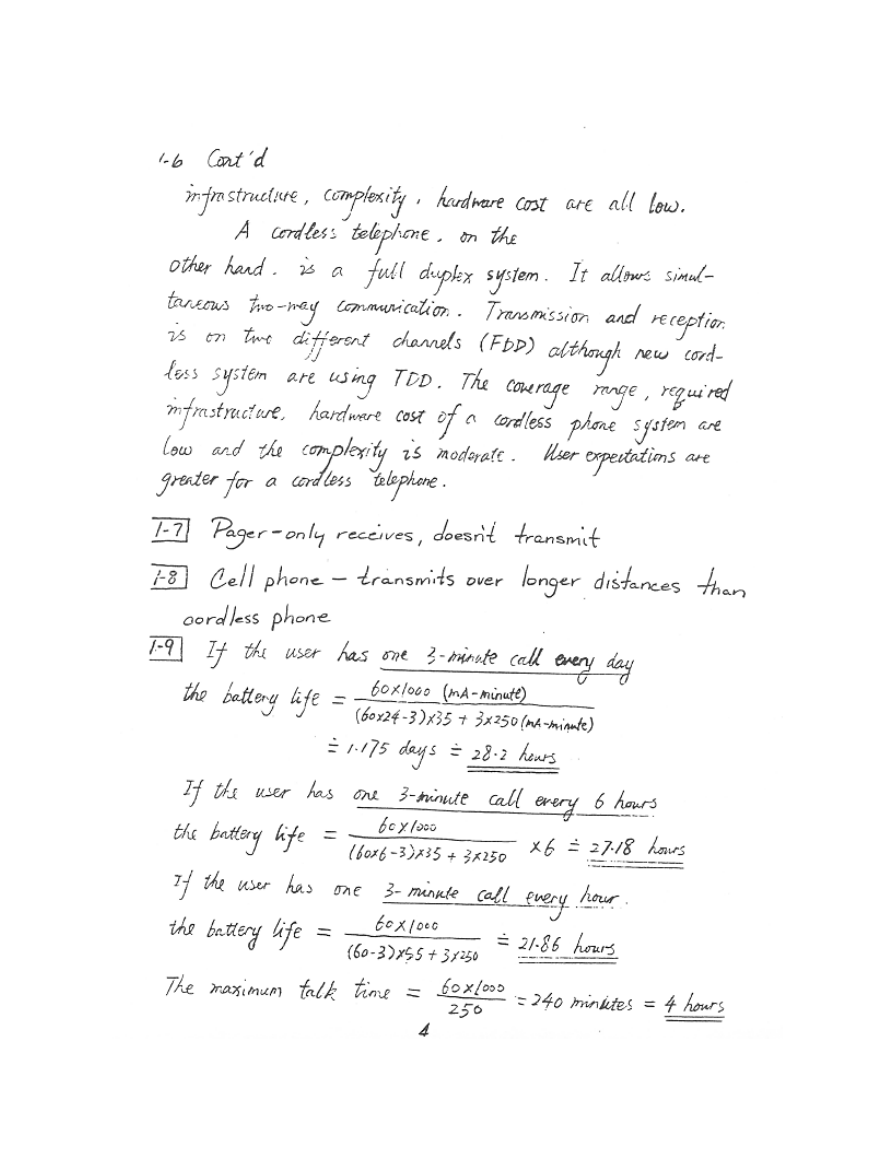 1-6 Cont'd
infrastructure, complexity, hardware cost are all low.
A cordless telephone, on the
other hand, is a full duplex system. It allows simul-
taneous two-way communication. Transmission and reception
is on two different channels (FDD) although new cord-
less system are using TDD. The coverage range, required
infrastructure, hardware cost of a cordless phone system are
low and the complexity is moderate. User expectations are
greater for a cordless telephone.
1-7 Pager-only receives, doesn't transmit
1-8 Cell phone - transmits over longer distances than
cordless phone
1-9 If the user has one 3-minute call every day
the battery life = 60x1000 (mA-minute) / (60x24-3)x35 + 3x250 (mA-minute)
≐ 1.175 days ≐ 28.2 hours
If the user has one 3-minute call every 6 hours
the battery life = 60x1000 / (60x6-3)x35 + 3x250 x6 ≐ 27.18 hours
If the user has one 3-minute call every hour.
the battery life = 60x1000 / (60-3)x35 + 3x250 ≐ 21.86 hours
The maximum talk time = 60x1000 / 250 = 240 minutes = 4 hours
4